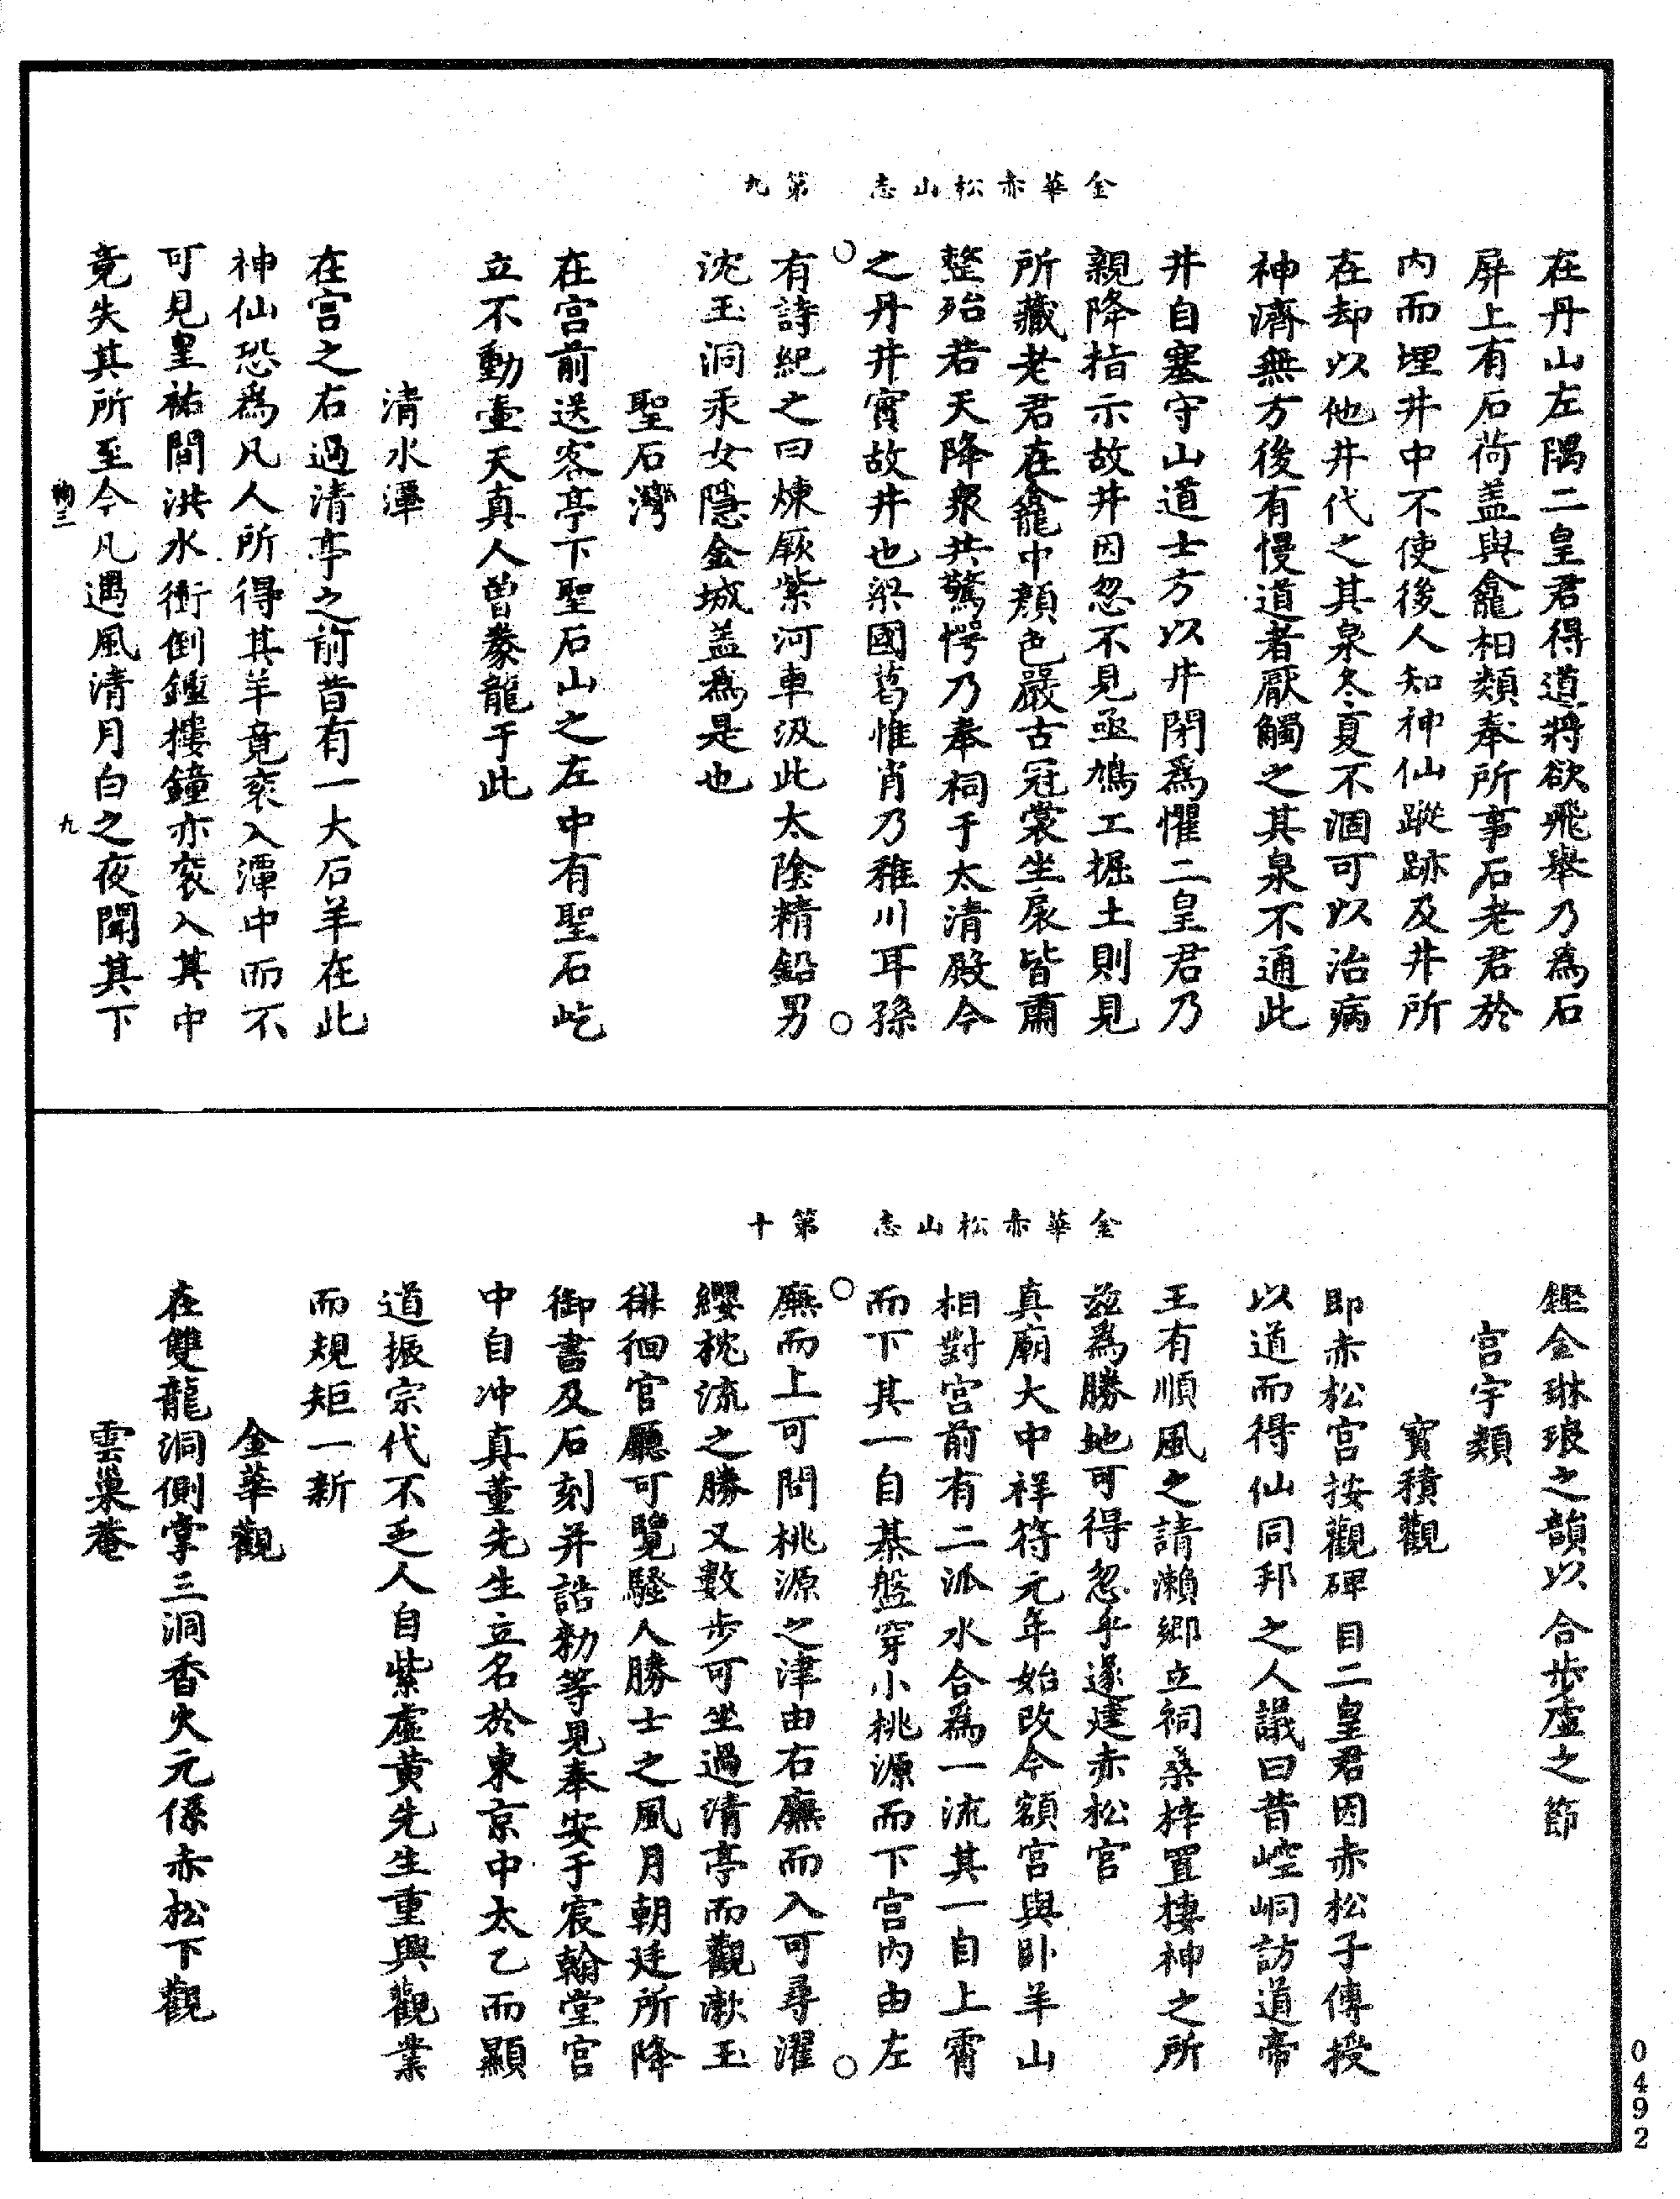 金華赤松山志　第九
在丹山左隅二皇君得道將欲飛舉乃為石
屏上有石荷盖與龕相類奉所事石老君於
内而埋井中不使後人知神仙蹤跡及井所
在却以他井代之其泉冬夏不涸可以治病
神濟無方後有慢道者厭觸之其泉不通此
井自塞守山道士方以井閉為懼二皇君乃
親降指示故井因忽不見亟鳩工掘土則見
所藏老君在龕中顔色嚴古冠裳坐扆皆肅
整殆若天降衆共驚愕乃奉祠于太清殿今
之丹井實故井也梁國葛惟肖乃稚川耳孫
有詩紀之曰煉厥紫河車汲此太陰精鉛男
沈玉洞汞女隱金城盖為是也
聖石灣
在宫前送客亭下聖石山之左中有聖石屹
立不動壷天真人曽豢龍于此
清水潭
在宫之右過清亭之前昔有一大石羊在此
神仙恐為凡人所得其羊竟衮入潭中而不
可見皇祐間洪水衝倒鍾樓鐘亦衮入其中
竟失其所至今凡遇風清月白之夜聞其下
鞠三　九
金華赤松山志　第十
鏗金琳琅之韻以合步虚之節
宫宇類
寳積觀
即赤松宫按觀碑目二皇君因赤松子傳授
以道而得仙同邦之人議曰昔崆峒訪道帝
王有順風之請瀨鄉立祠桑梓置棲神之所
兹為勝地可得忽乎遂建赤松宫
真廟大中祥符元年始改今額宫與卧羊山
相對宫前有二派水合為一流其一自上霄
而下其一自棊盤穿小桃源而下宫内由左
廡而上可問桃源之津由右廡而入可尋濯
纓枕流之勝又數步可坐過清亭而觀漱玉
徘徊官廳可覽騷人勝士之風月朝廷所降
御書及石刻并誥勑等見奉安于宸翰堂宫
中自冲真董先生立名於東京中太乙而顯
道振宗代不乏人自紫虚黄先生重興觀業
而規矩一新
金華觀
在雙龍洞側掌三洞香火元係赤松下觀
雲巢菴
0492